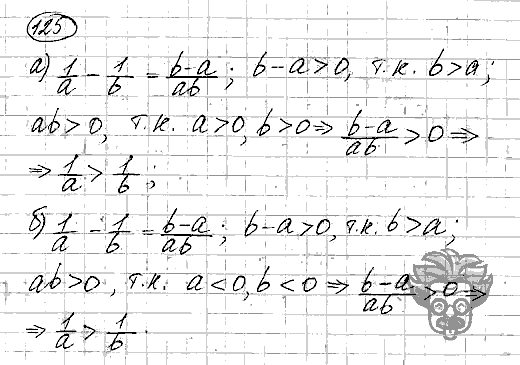 125
а) 1/a − 1/b = (b−a)/ab ; b−a>0, т.к. b>a;
ab>0, т.к. a>0, b>0 ⇒ (b−a)/ab > 0 ⇒
⇒ 1/a > 1/b ;
б) 1/a − 1/b = (b−a)/ab ; b−a>0, т.к. b>a;
ab>0, т.к. a<0, b<0 ⇒ (b−a)/ab > 0 ⇒
⇒ 1/a > 1/b .